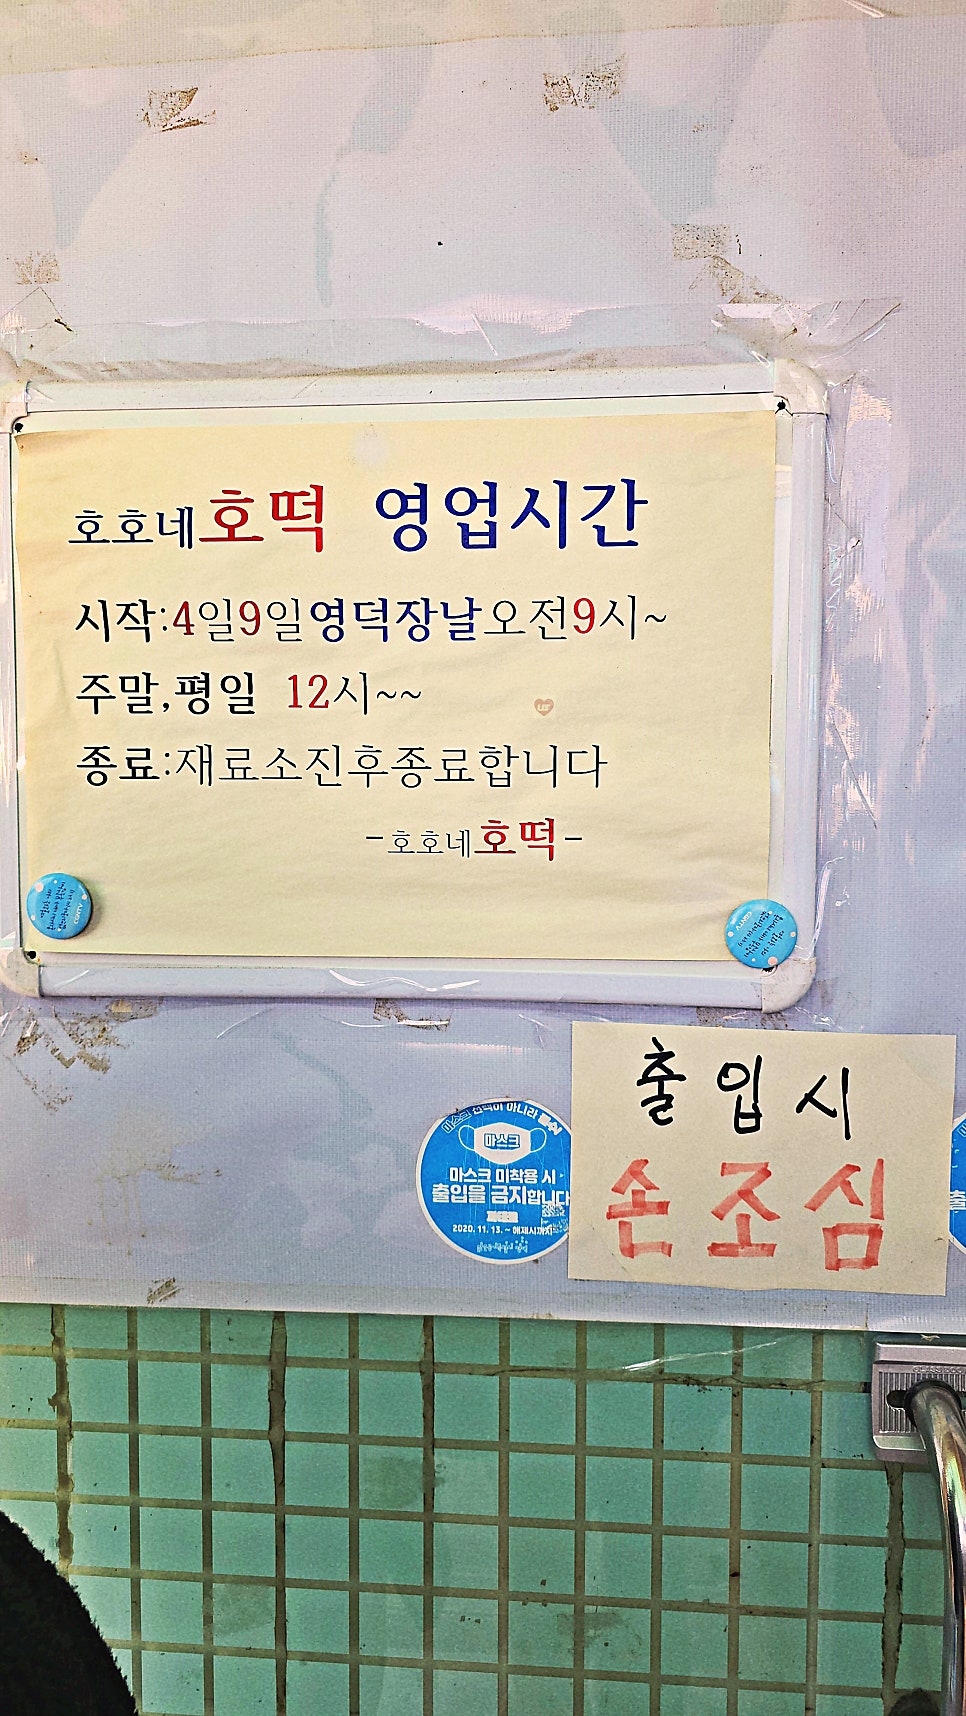 호호네호떡 영업시간
시작:4일9일영덕장날오전9시~
주말,평일 12시~~
종료:재료소진후종료합니다
-호호네호떡-
CGNTV
CGNTV
출입시
손조심
마스크 선택이 아니라 필수!
마스크
마스크 미착용 시
출입을 금지합니다
2020. 11. 13. ~ 해제시까지
출